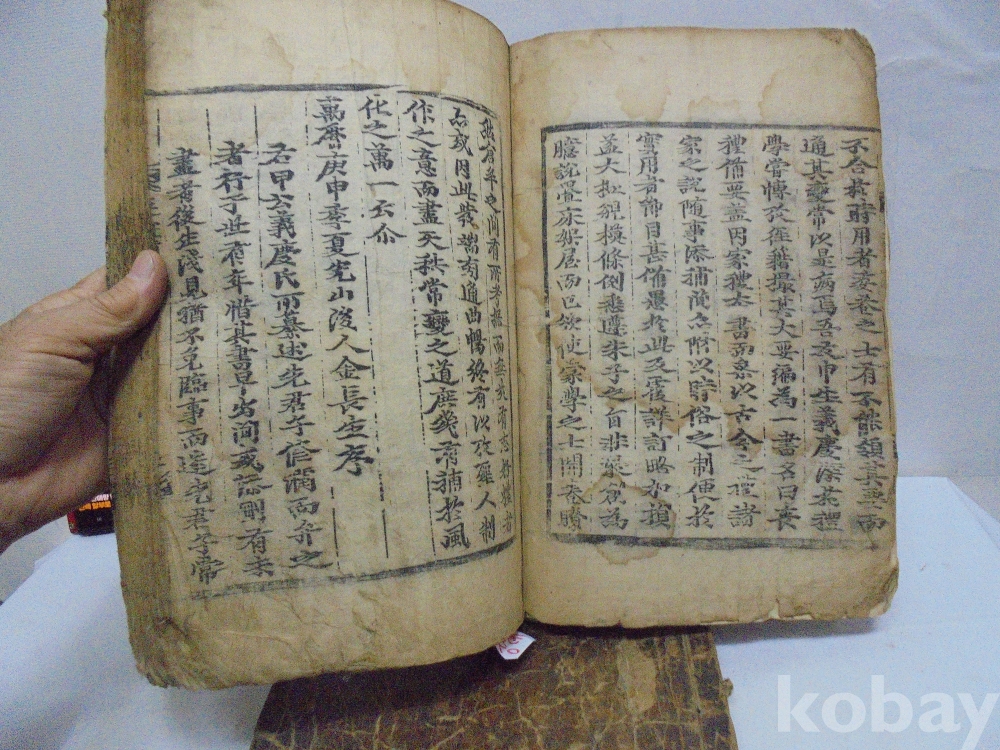 不合於時用者委巷之士有不能領其要而
通其變常以是病焉吾友申生義慶深於禮
學嘗博攷經籍撮其大要編為一書名曰喪
禮備要盖因家禮本書而參以古今之禮諸
家之說隨事添補間亦附以時俗之制便於
實用者節目甚備愚於此又覆詳訂略加損
益大抵規模條例悉遵朱子之旨非敢為
說疊床架屋而已欲使家學之士開卷瞭
之間有所
或因此發端旁通曲暢終有以攷聖人制
作之意而盡天秩常變之道庶幾有補於風
化之萬一云尒
萬曆庚申季夏光山後人金長生序
右申公義慶氏所纂述先君子修潤而弁之
者行于世有年惜其書早出間或有未
盡者後生淺見猶不免臨事而迷先君子常
kobay